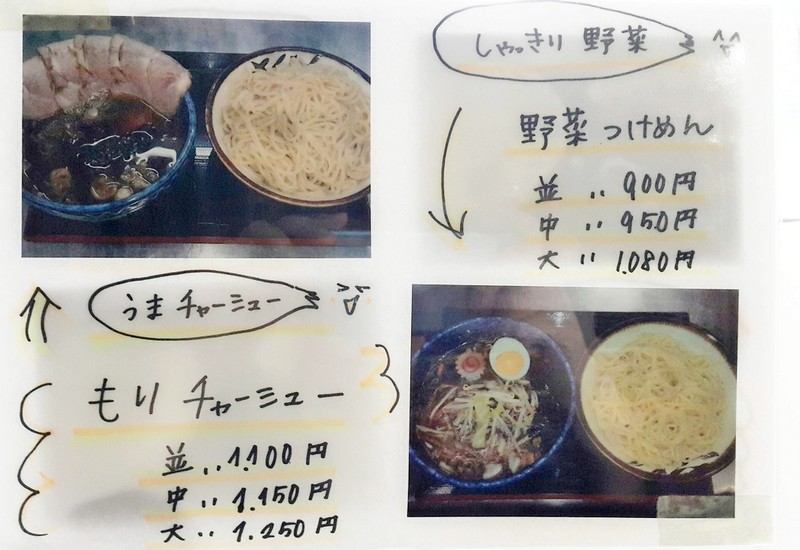 しゃっきり 野菜
野菜 つけめん
並 ‥ 900円
中 ‥ 950円
大 ‥ 1.080円
うま チャーシュー
もり チャーシュー
並 ‥ 1.100円
中 ‥ 1.150円
大 ‥ 1.250円